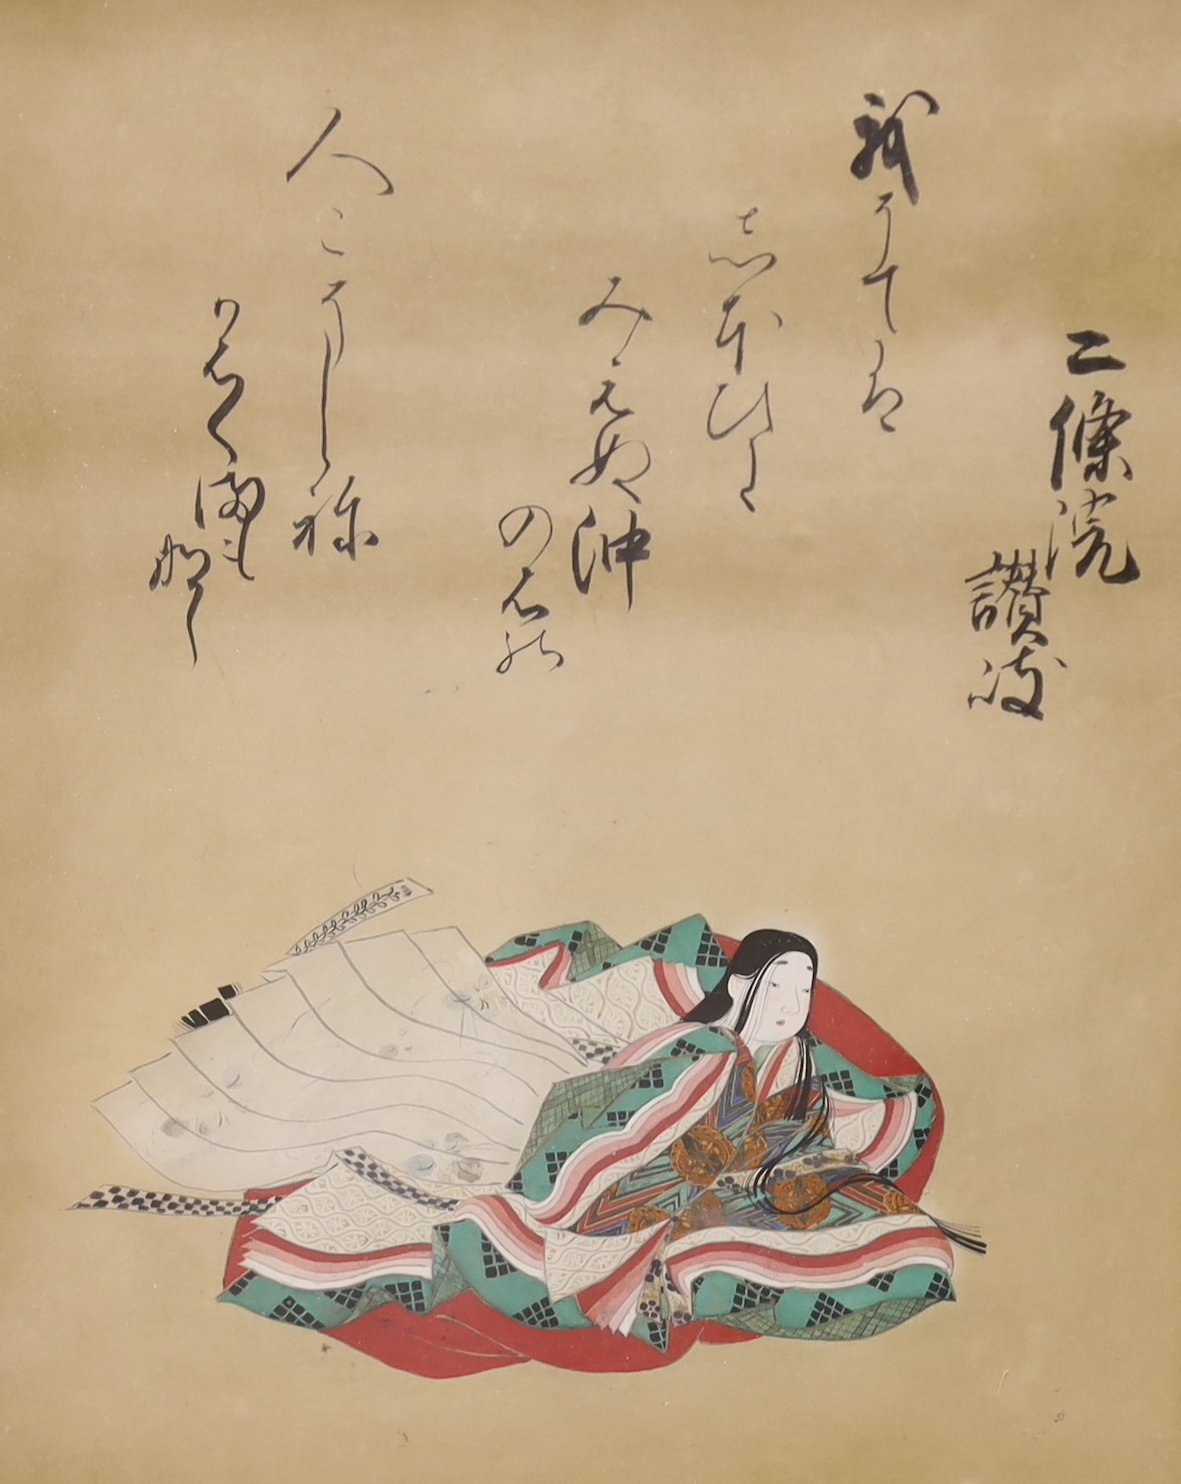 二條院
讃岐
我そては
しほひに
みえぬ沖
の石の
人こそしらね
かわくまも
なし